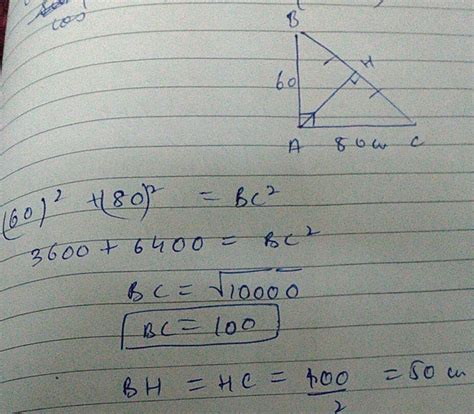 cos
B
H
60
A 80 cm C
(60)² + (80)² = BC²
3600 + 6400 = BC²
BC = √10000
BC = 100
BH = HC = 100/2 = 50 cm